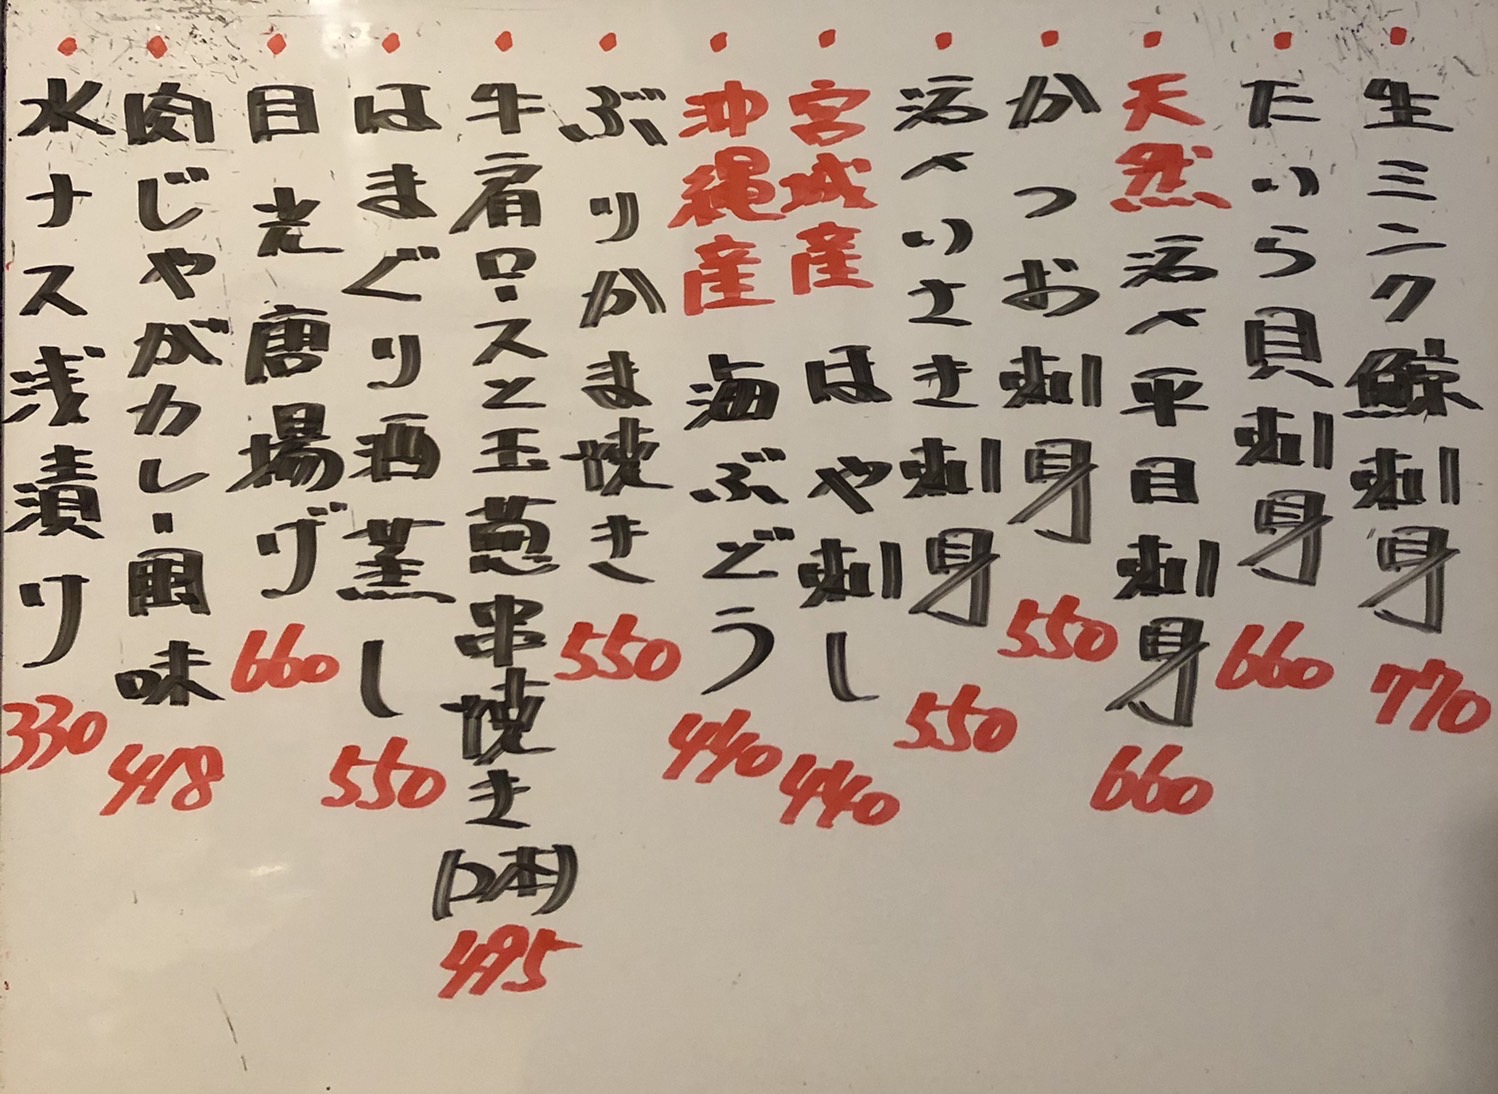 ・生ミンク鯨刺身 770
・たいら貝刺身 660
・天然活〆平目刺身 660
・かつお刺身 550
・活〆いさき刺身 550
・宮城産 ほや刺し 440
・沖縄産 海ぶどう 440
・ぶりかま焼き 550
・牛肩ロースと玉葱串焼き(2本) 495
・はまぐり酒蒸し 550
・目光唐揚げ 660
・肉じゃがカレー風味 418
・水ナス浅漬け 330